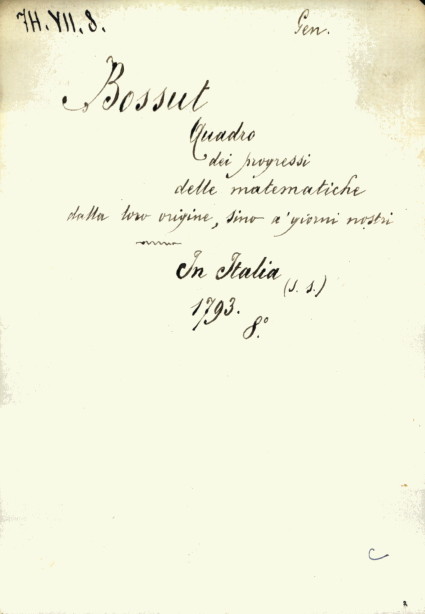 7H.VII.8.
Gen.
Bossut
Quadro
dei progressi
delle matematiche
dalla loro origine, sino a' giorni nostri
In Italia
(s. s.)
1793.
8.°
C